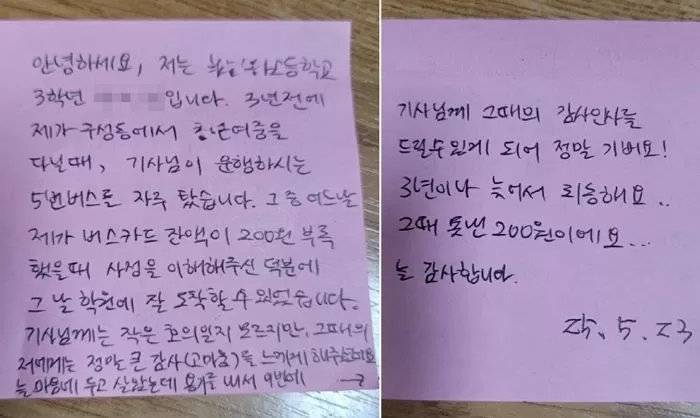 안녕하세요, 저는 고등학교
3학년 입니다. 3년전에
제가 구성동에서 청년여중을
다닐때, 기사님이 운행하시는
5번버스를 자주 탔습니다. 그 중 어느날
제가 버스카드 잔액이 200원 부족
했을때 사정을 이해해주신 덕분에
그 날 학원에 잘 도착할 수 있었습니다.
기사님께는 작은 호의일지 모르지만, 그때의
저에게는 정말 큰 감사(고마움)를 느끼게 해주셨어요
늘 마음에 두고 살았는데 용기를 내서 이번에 →
기사님께 그때의 감사인사를
드릴수있게 되어 정말 기뻐요!
3년이나 늦어서 죄송해요..
그때 못낸 200원이에요...
늘 감사합니다.
25. 5. 23